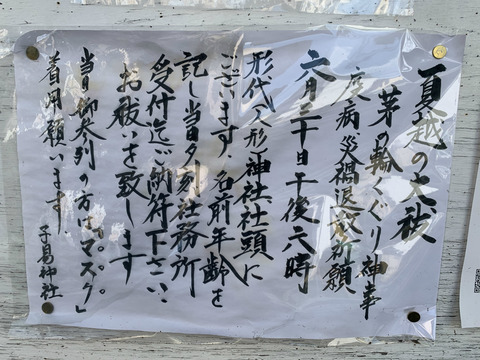 夏越の大祓
茅の輪くぐり神事
疫病、災禍退散祈願
六月三十日午後六時
形代(人形)神社社頭に
ございます、名前年齢を
記し当日夕刻社務所
受付迄ご納符下さい
お祓いを致します
当日御参列の方は、「マスク」
着用願います。
子易神社